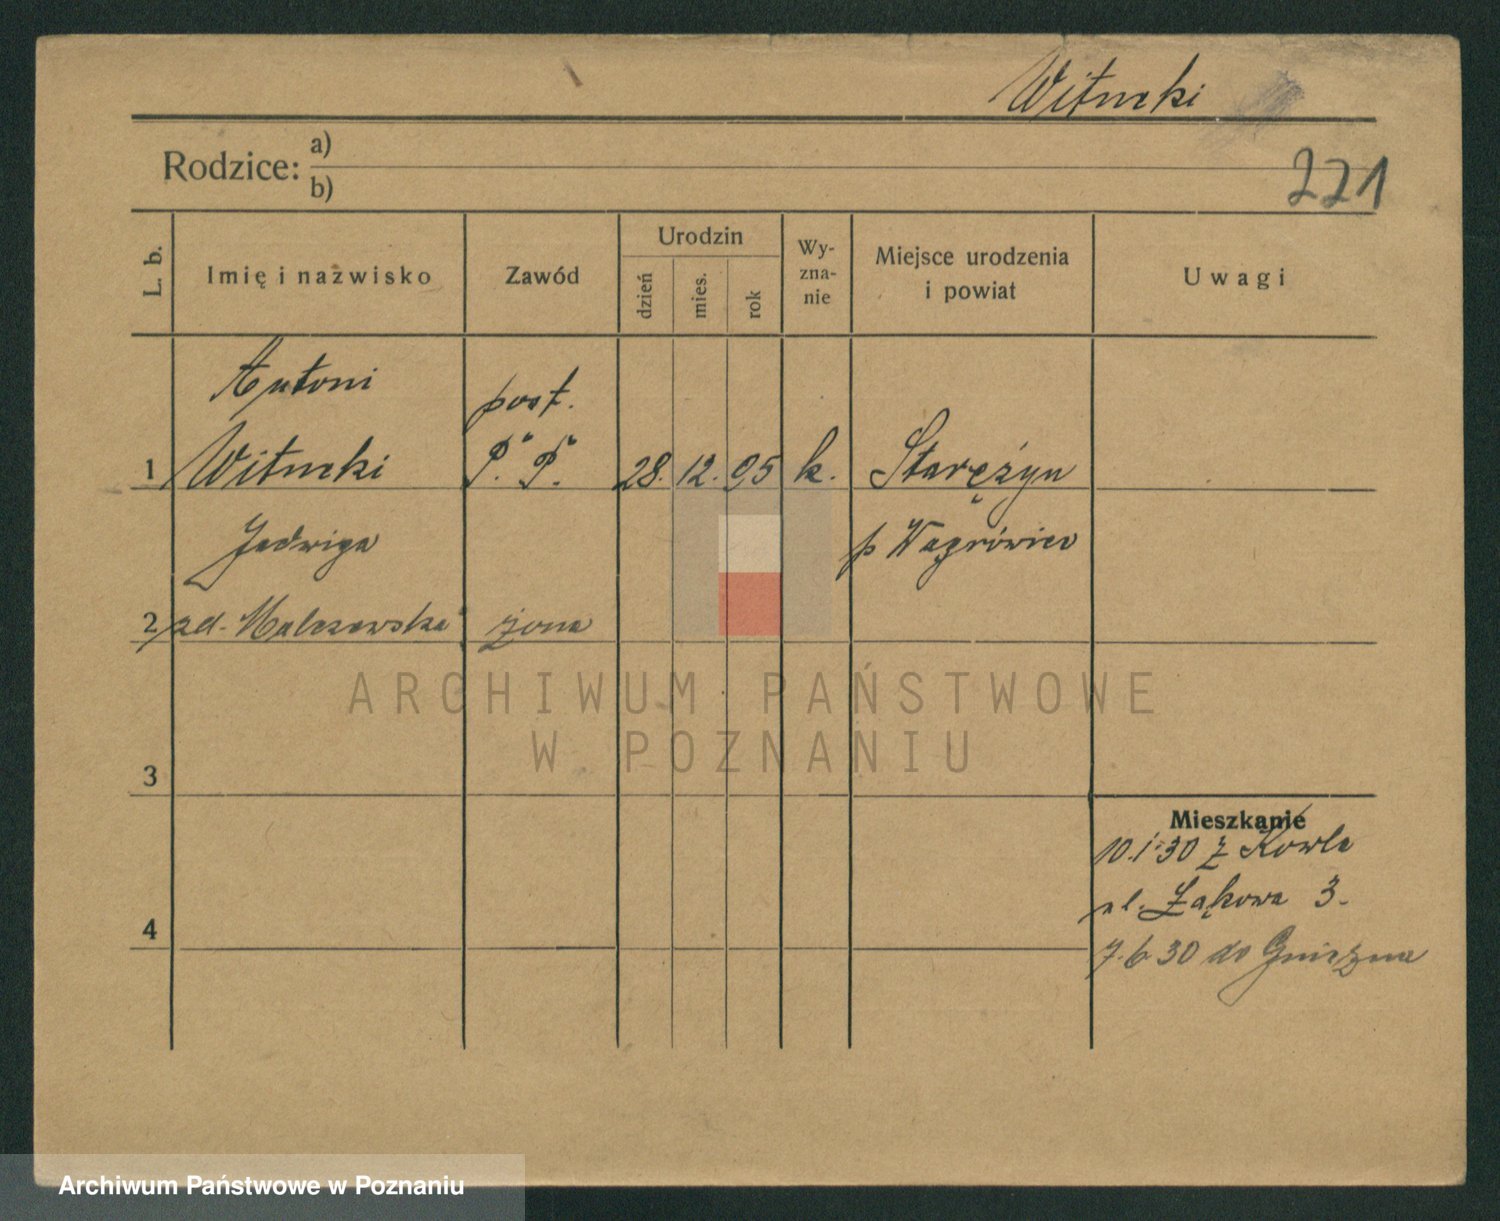 Witucki
Rodzice: a)
b)
221
L. b.
Imię i nazwisko
Zawód
Urodzin
dzień
mies.
rok
Wy-
zna-
nie
Miejsce urodzenia
i powiat
Uwagi
Antoni
post.
1 Witucki P. P. 28. 12. 95 k. Starężyn
Jadwiga
p Wągrówiec
2 zd. Malczewska żona
3
4
Mieszkanie
10.1.30 z Kowla
ul. Łąkowa 3.
7.6.30 do Gniezna
ARCHIWUM PAŃSTWOWE
W POZNANIU
Archiwum Państwowe w Poznaniu